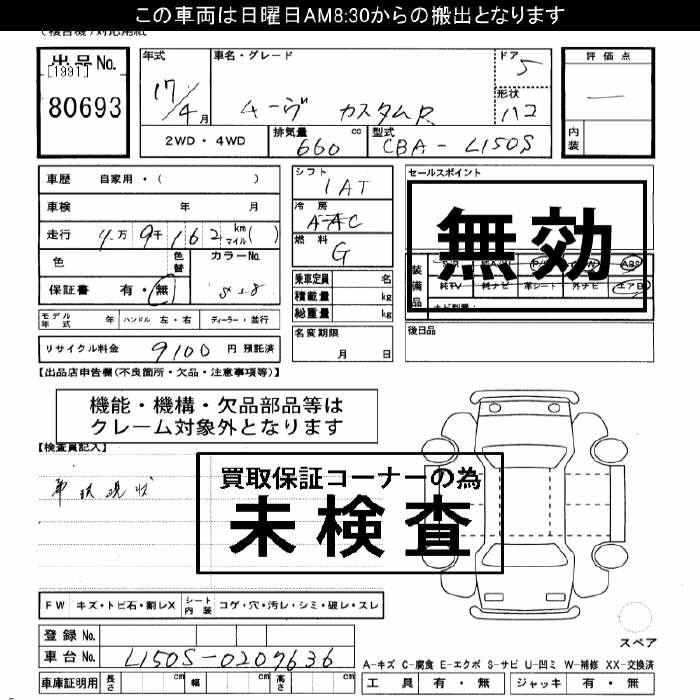 この車両は日曜日AM8:30からの搬出となります
出品No.
[1991]
80693
年式 17/4月
車名・グレード ムーヴ カスタムR
ドア 5
形状 ハコ
評価点 —
内装
2WD・4WD
排気量 660 cc
型式 CBA-L150S
車歴 自家用・( )
車検 年 月
走行 4万9千162 km マイル( )
色 色替 カラーNo. S28
保証書 有・無
シフト 1AT
冷房 AAC
燃料 G
乗車定員 名
積載量 kg
総重量 kg
名変期限 月 日
セールスポイント
無効
装備品
ABS
純TV 純ナビ 革シート 外ナビ エアB
後日品
モデル年式 年 ハンドル 左・右 ディーラー・並行
リサイクル料金 9100 円 預託済
【出品店申告欄(不良箇所・欠品・注意事項等)】
機能・機構・欠品部品等は
クレーム対象外となります
【検査員記入】
買取保証コーナーの為
未検査
現状
FW キズ・トビ石・割レX シート内装 コゲ・穴・汚レ・シミ・破レ・スレ
登録No.
車台No. L150S-0207636
車庫証明用 長さ cm 幅 cm 高さ cm
スペア
A-キズ C-腐食 E-エクボ S-サビ U-凹ミ W-補修 XX-交換済
工具 有・無 ジャッキ 有・無